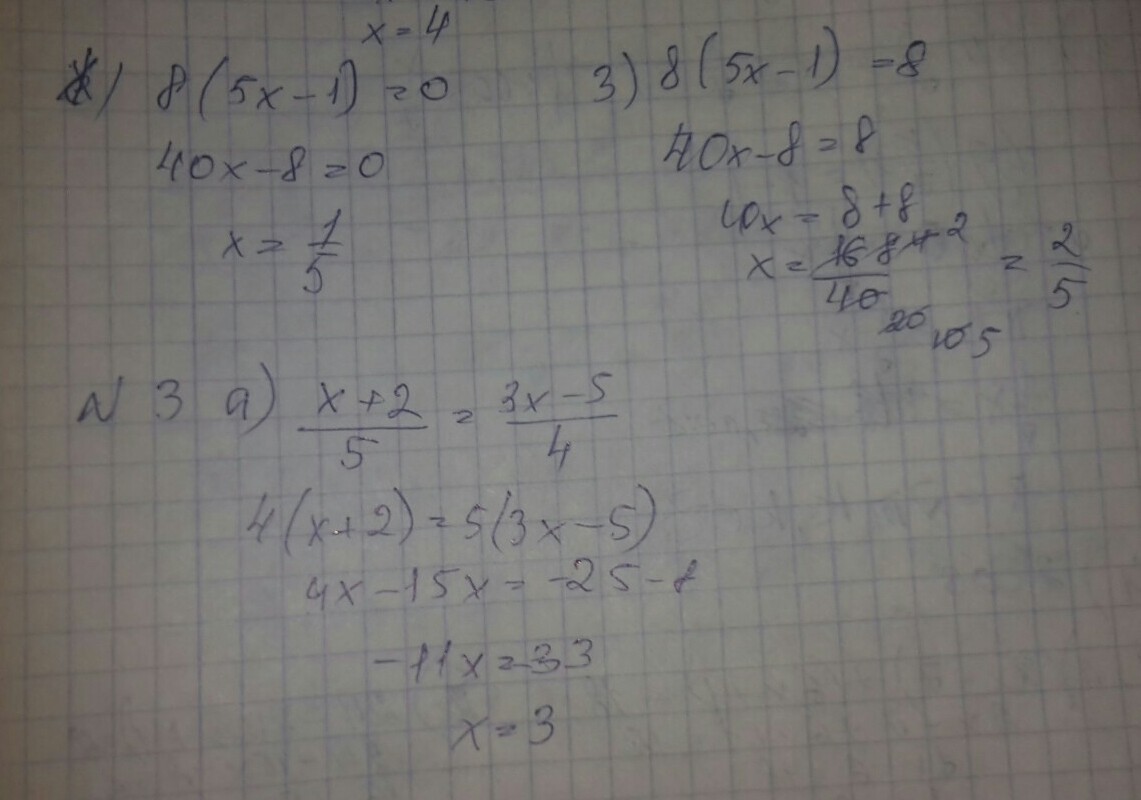 x = 4
ж) 8(5x-1) = 0
40x-8 = 0
x = 1/5
з) 8(5x-1) = 8
40x-8 = 8
40x = 8+8
x = 16 8 4 2 / 40 20 10 5 = 2/5
N 3 a) x+2/5 = 3x-5/4
4(x+2) = 5(3x-5)
4x-15x = -25-8
-11x = -33
x = 3